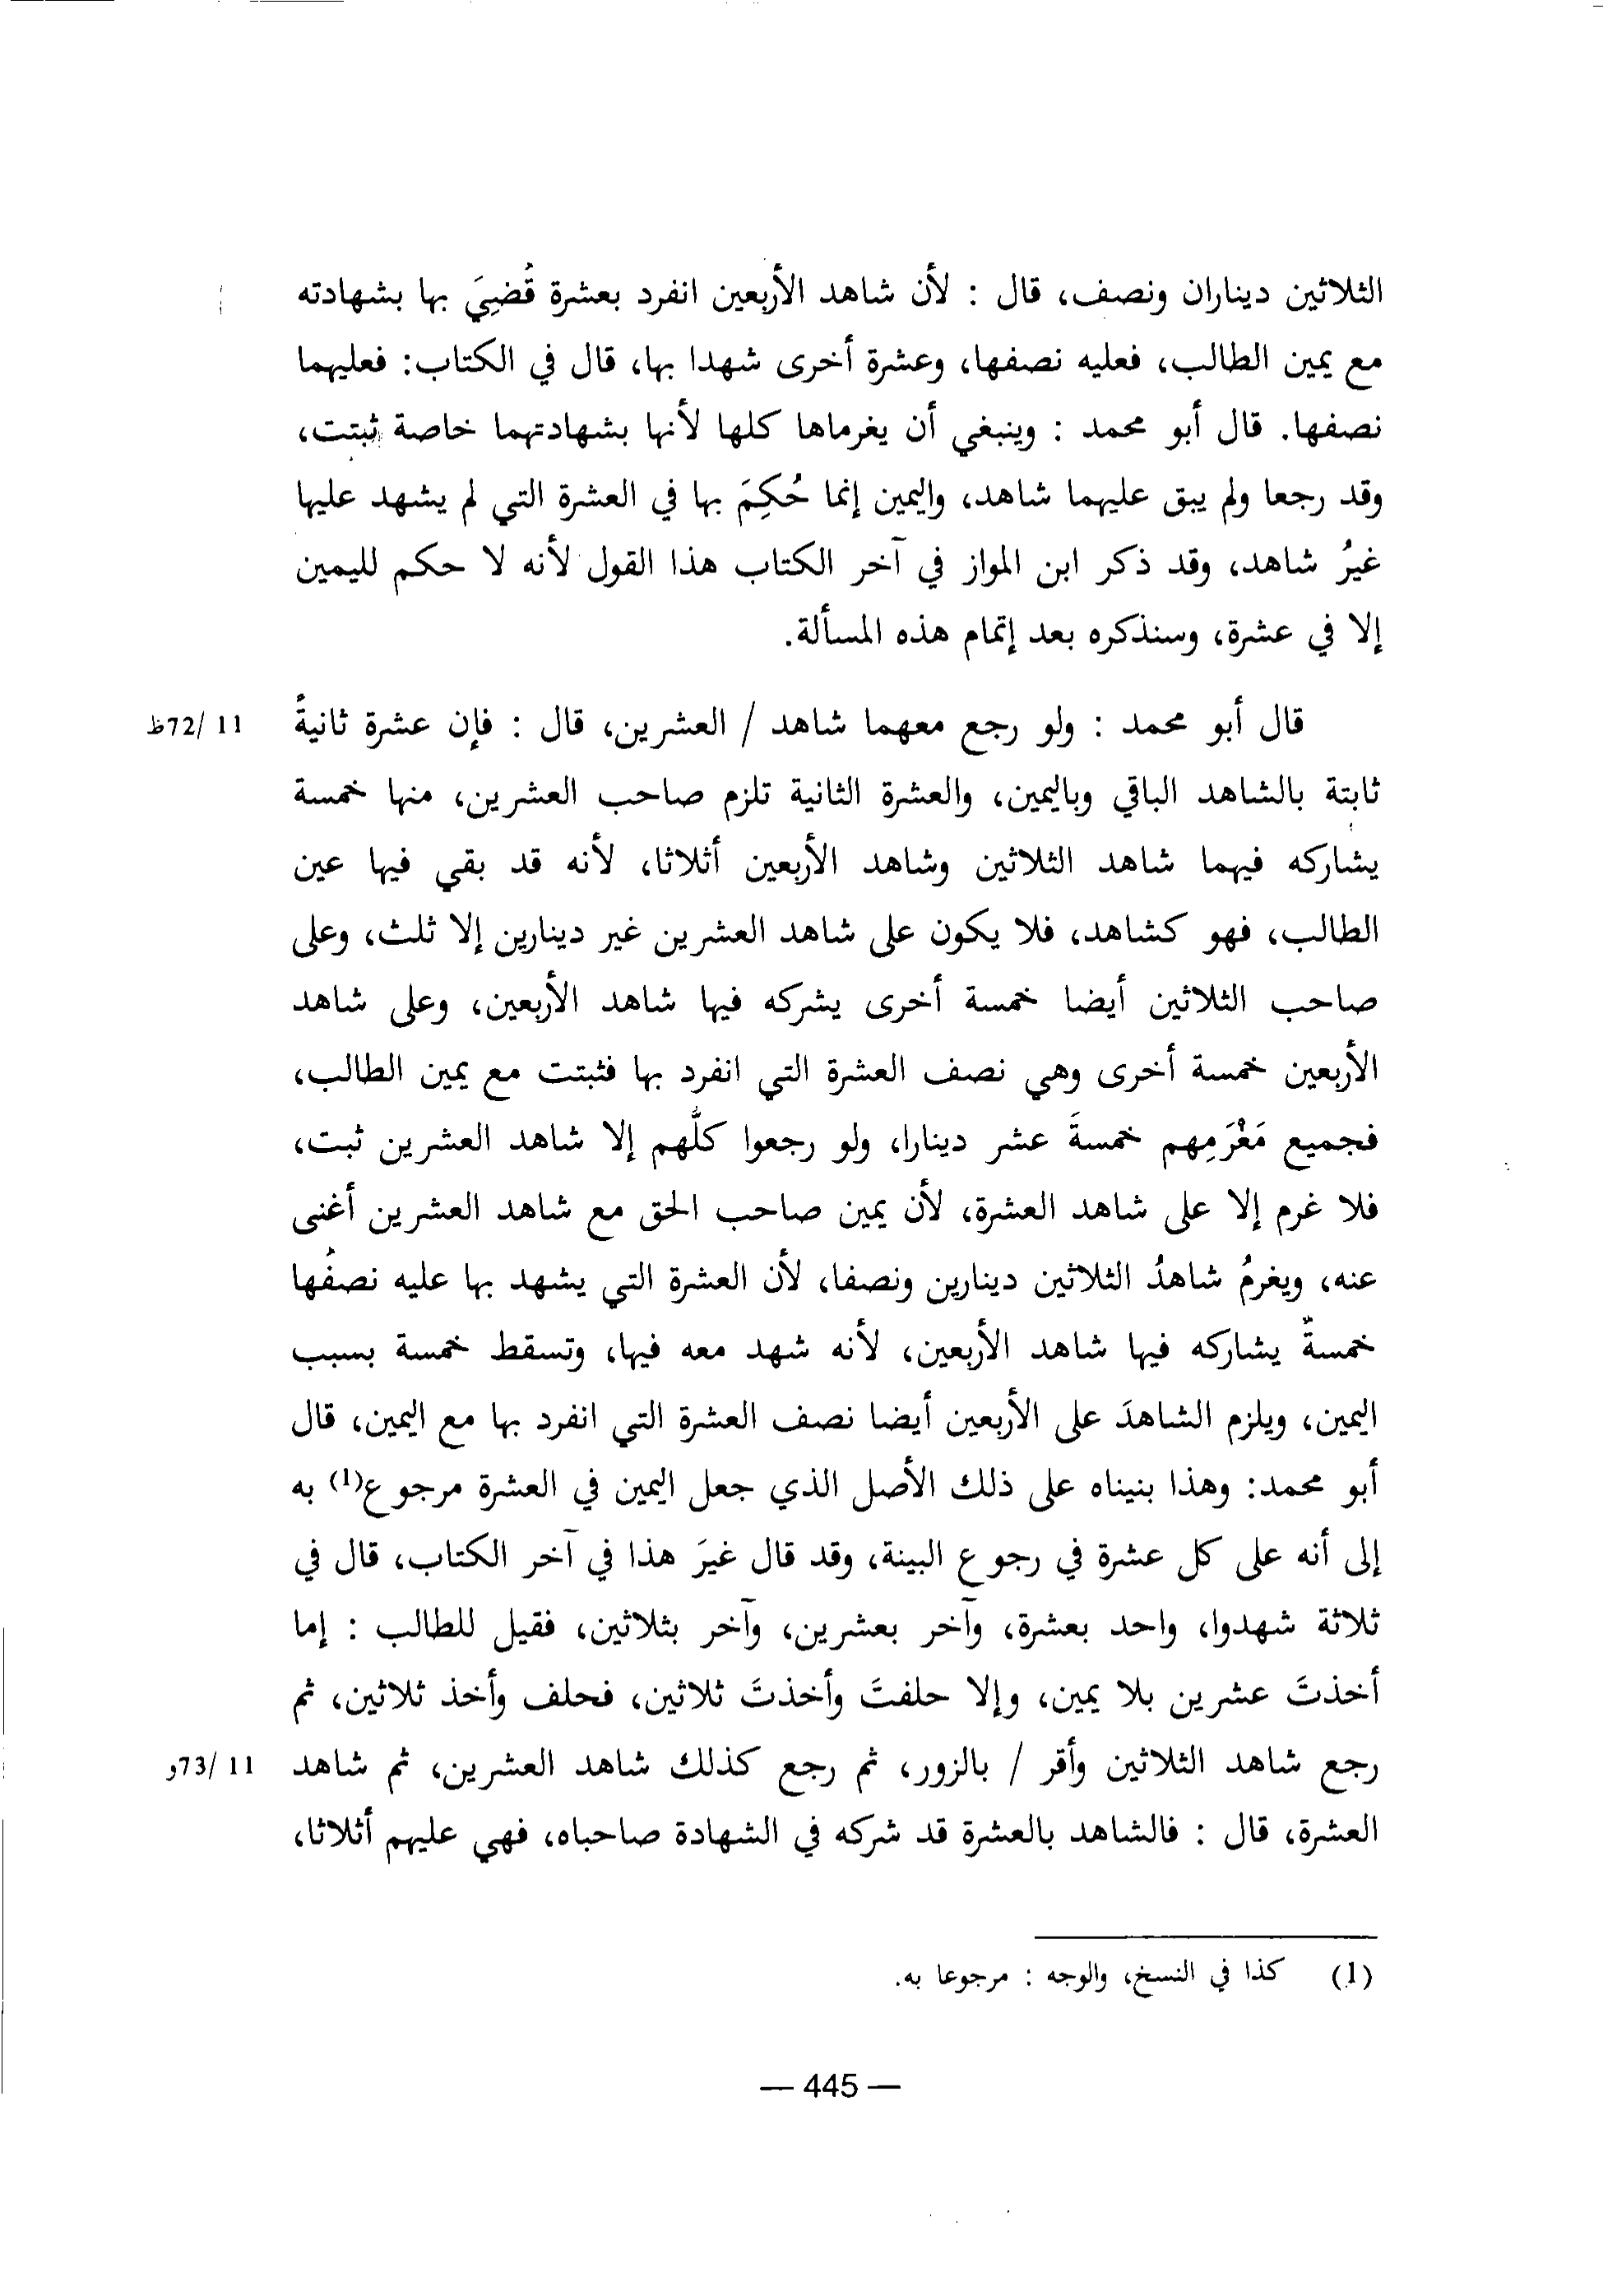 الثلاثين ديناران ونصف، قال : لأن شاهد الأربعين انفرد بعشرة قُضِيَ بها بشهادته
مع يمين الطالب، فعليه نصفها، وعشرة أخرى شهدا بها، قال في الكتاب: فعليهما
نصفها. قال أبو محمد : وينبغي أن يغرماها كلها لأنها بشهادتهما خاصة ثبتت،
وقد رجعا ولم يبق عليهما شاهد، واليمين إنما حُكِمَ بها في العشرة التي لم يشهد عليها
غيرُ شاهد، وقد ذكر ابن المواز في آخر الكتاب هذا القول لأنه لا حكم لليمين
إلا في عشرة، وسنذكره بعد إتمام هذه المسألة.
قال أبو محمد : ولو رجع معهما شاهد / العشرين، قال : فإن عشرة ثانيةً 11 /72ظ
ثابتة بالشاهد الباقي وباليمين، والعشرة الثانية تلزم صاحب العشرين، منها خمسة
يشاركه فيهما شاهد الثلاثين وشاهد الأربعين أثلاثا، لأنه قد بقي فيها عين
الطالب، فهو كشاهد، فلا يكون على شاهد العشرين غير دينارين إلا ثلث، وعلى
صاحب الثلاثين أيضا خمسة أخرى يشركه فيها شاهد الأربعين، وعلى شاهد
الأربعين خمسة أخرى وهي نصف العشرة التي انفرد بها فثبتت مع يمين الطالب،
فجميع مَغْرَمِهم خمسةَ عشر دينارا، ولو رجعوا كلُّهم إلا شاهد العشرين ثبت،
فلا غرم إلا على شاهد العشرة، لأن يمين صاحب الحق مع شاهد العشرين أغنى
عنه، ويغرمُ شاهدُ الثلاثين دينارين ونصفا، لأن العشرة التي يشهد بها عليه نصفُها
خمسةٌ يشاركه فيها شاهد الأربعين، لأنه شهد معه فيها، وتسقط خمسة بسبب
اليمين، ويلزم الشاهدَ على الأربعين أيضا نصف العشرة التي انفرد بها مع اليمين، قال
أبو محمد: وهذا بنيناه على ذلك الأصل الذي جعل اليمين في العشرة مرجوع(1) به
إلى أنه على كل عشرة في رجوع البينة، وقد قال غيرَ هذا في آخر الكتاب، قال في
ثلاثة شهدوا، واحد بعشرة، وآخر بعشرين، وآخر بثلاثين، فقيل للطالب : إما
أخذتَ عشرين بلا يمين، وإلا حلفتَ وأخذتَ ثلاثين، فحلف وأخذ ثلاثين، ثم
رجع شاهد الثلاثين وأقر / بالزور، ثم رجع كذلك شاهد العشرين، ثم شاهد 11 /73و
العشرة، قال : فالشاهد بالعشرة قد شركه في الشهادة صاحباه، فهي عليهم أثلاثا،
(1) كذا في النسخ، والوجه : مرجوعا به.
— 445 —